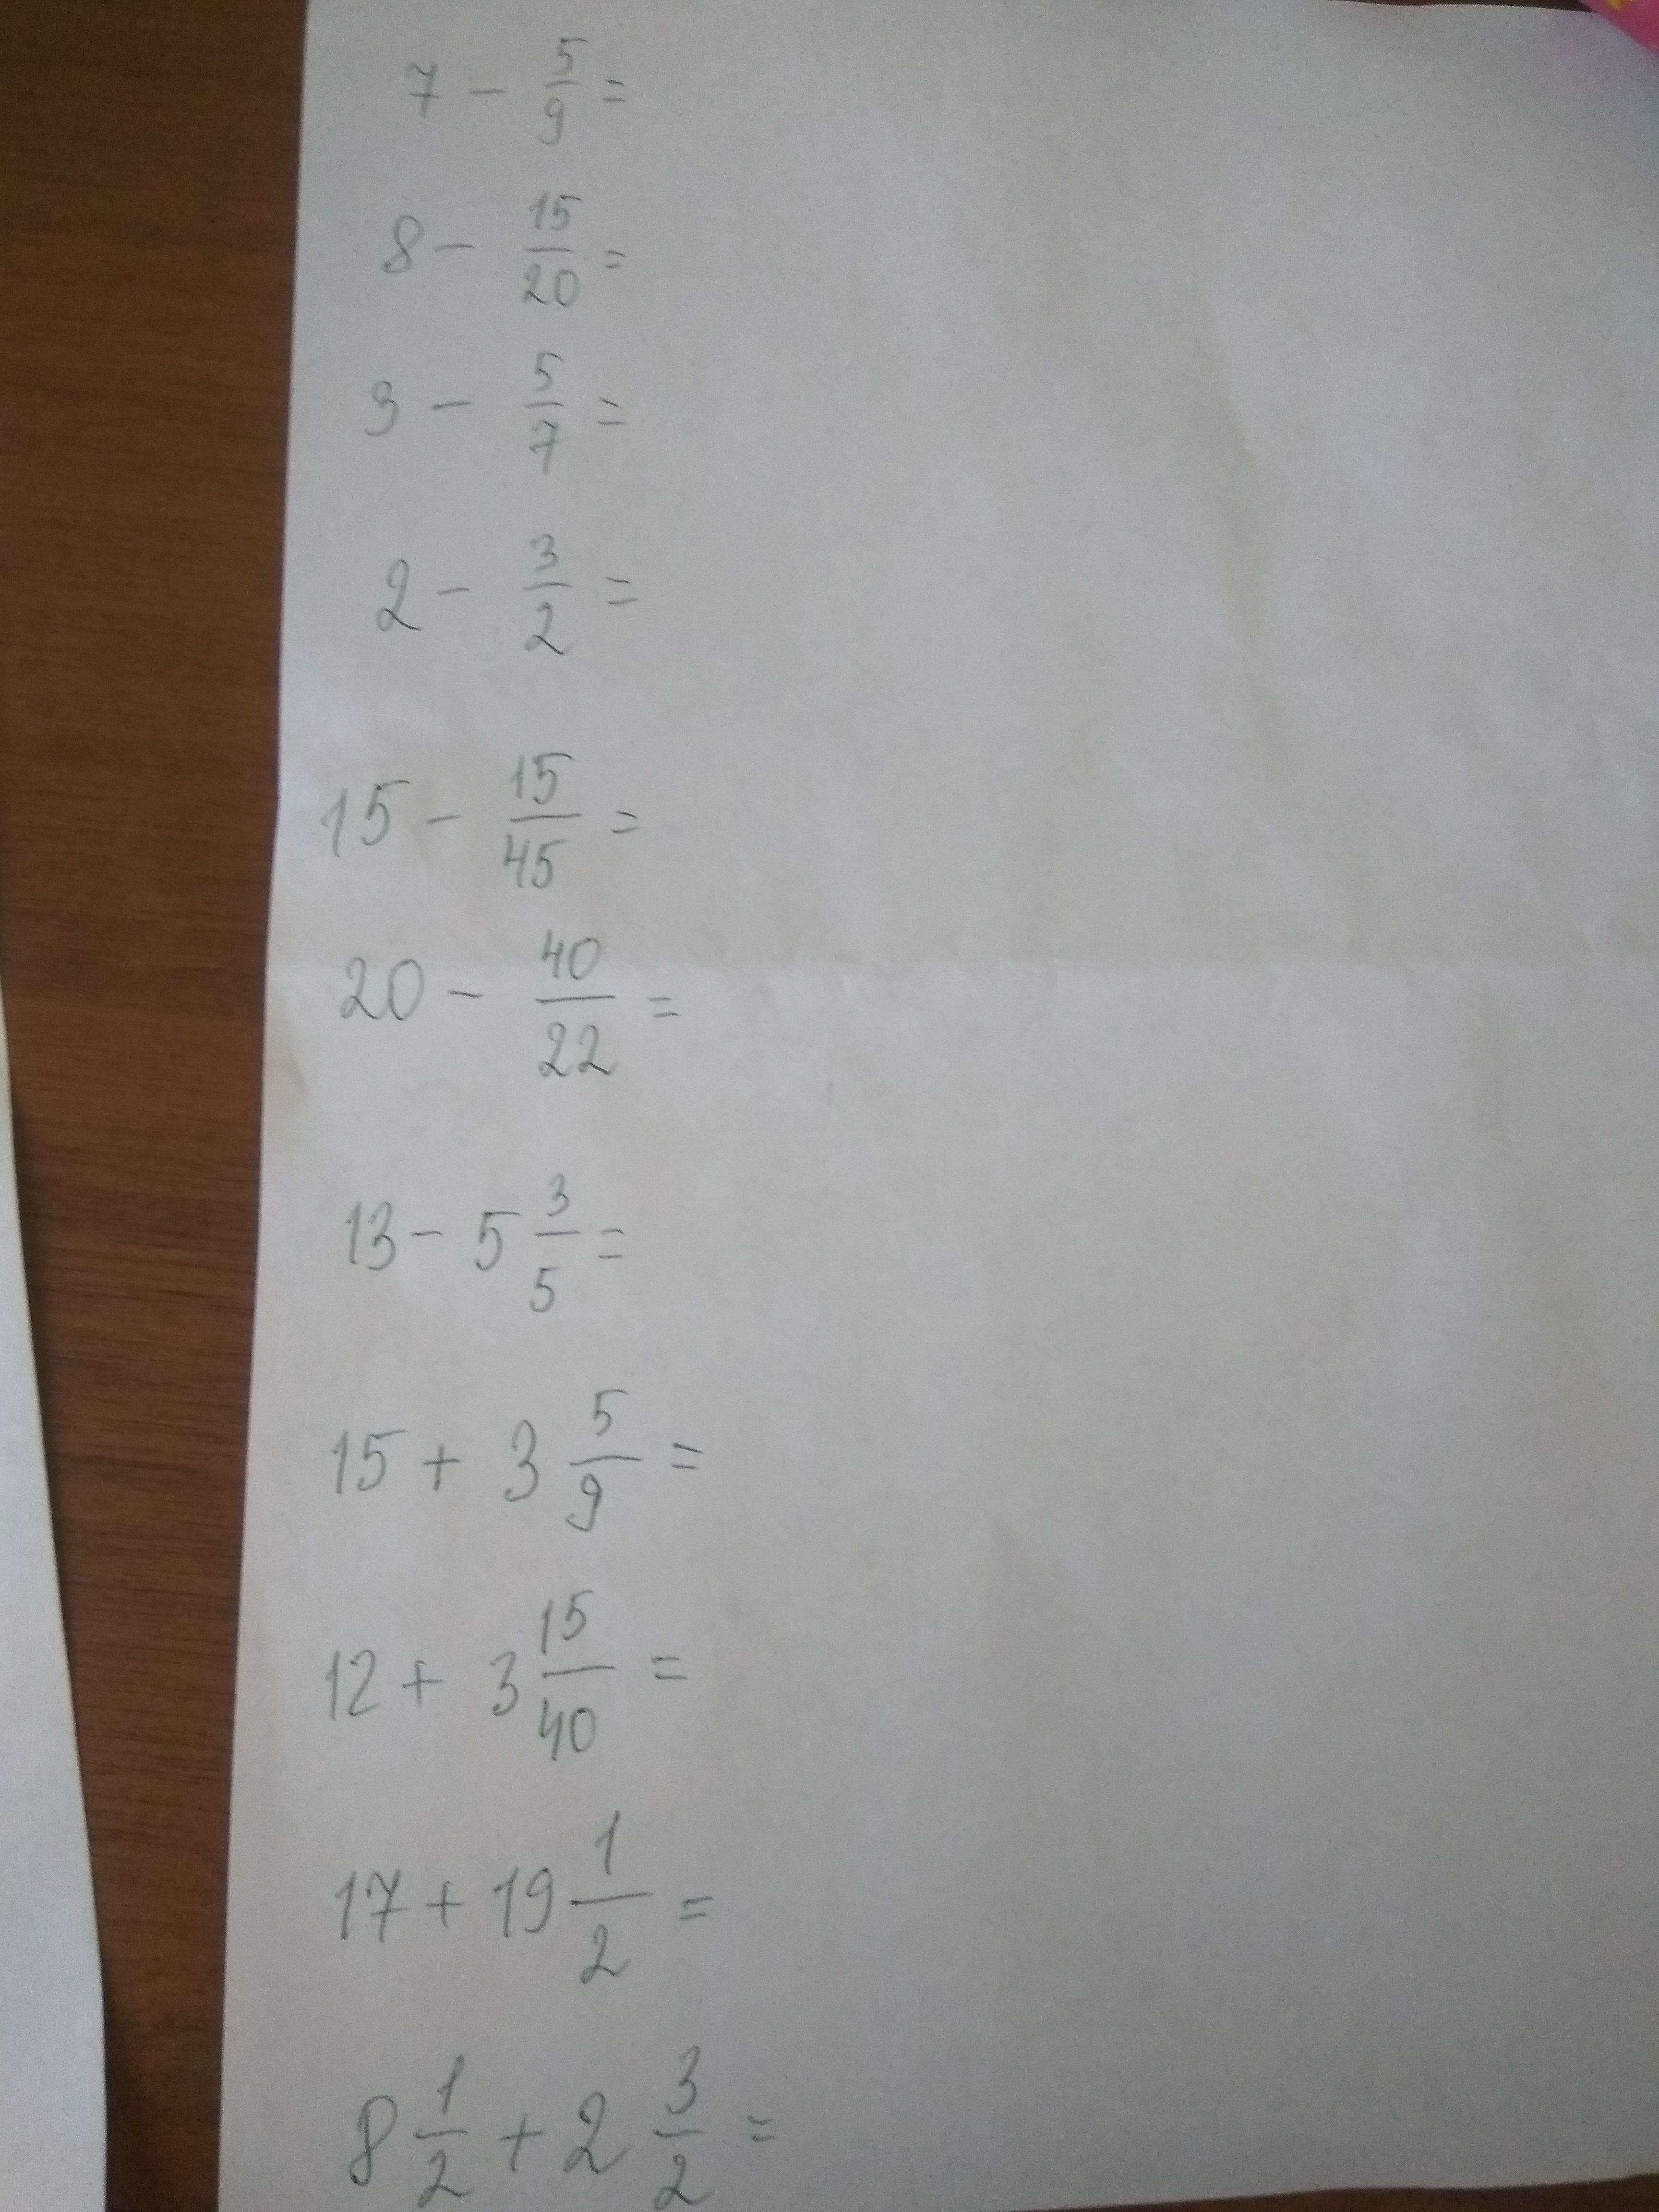 7 - 5/9 =
8 - 15/20 =
3 - 5/7 =
2 - 3/2 =
15 - 15/45 =
20 - 40/22 =
13 - 5 3/5 =
15 + 3 5/9 =
12 + 3 15/40 =
17 + 19 1/2 =
8 1/2 + 2 3/2 =